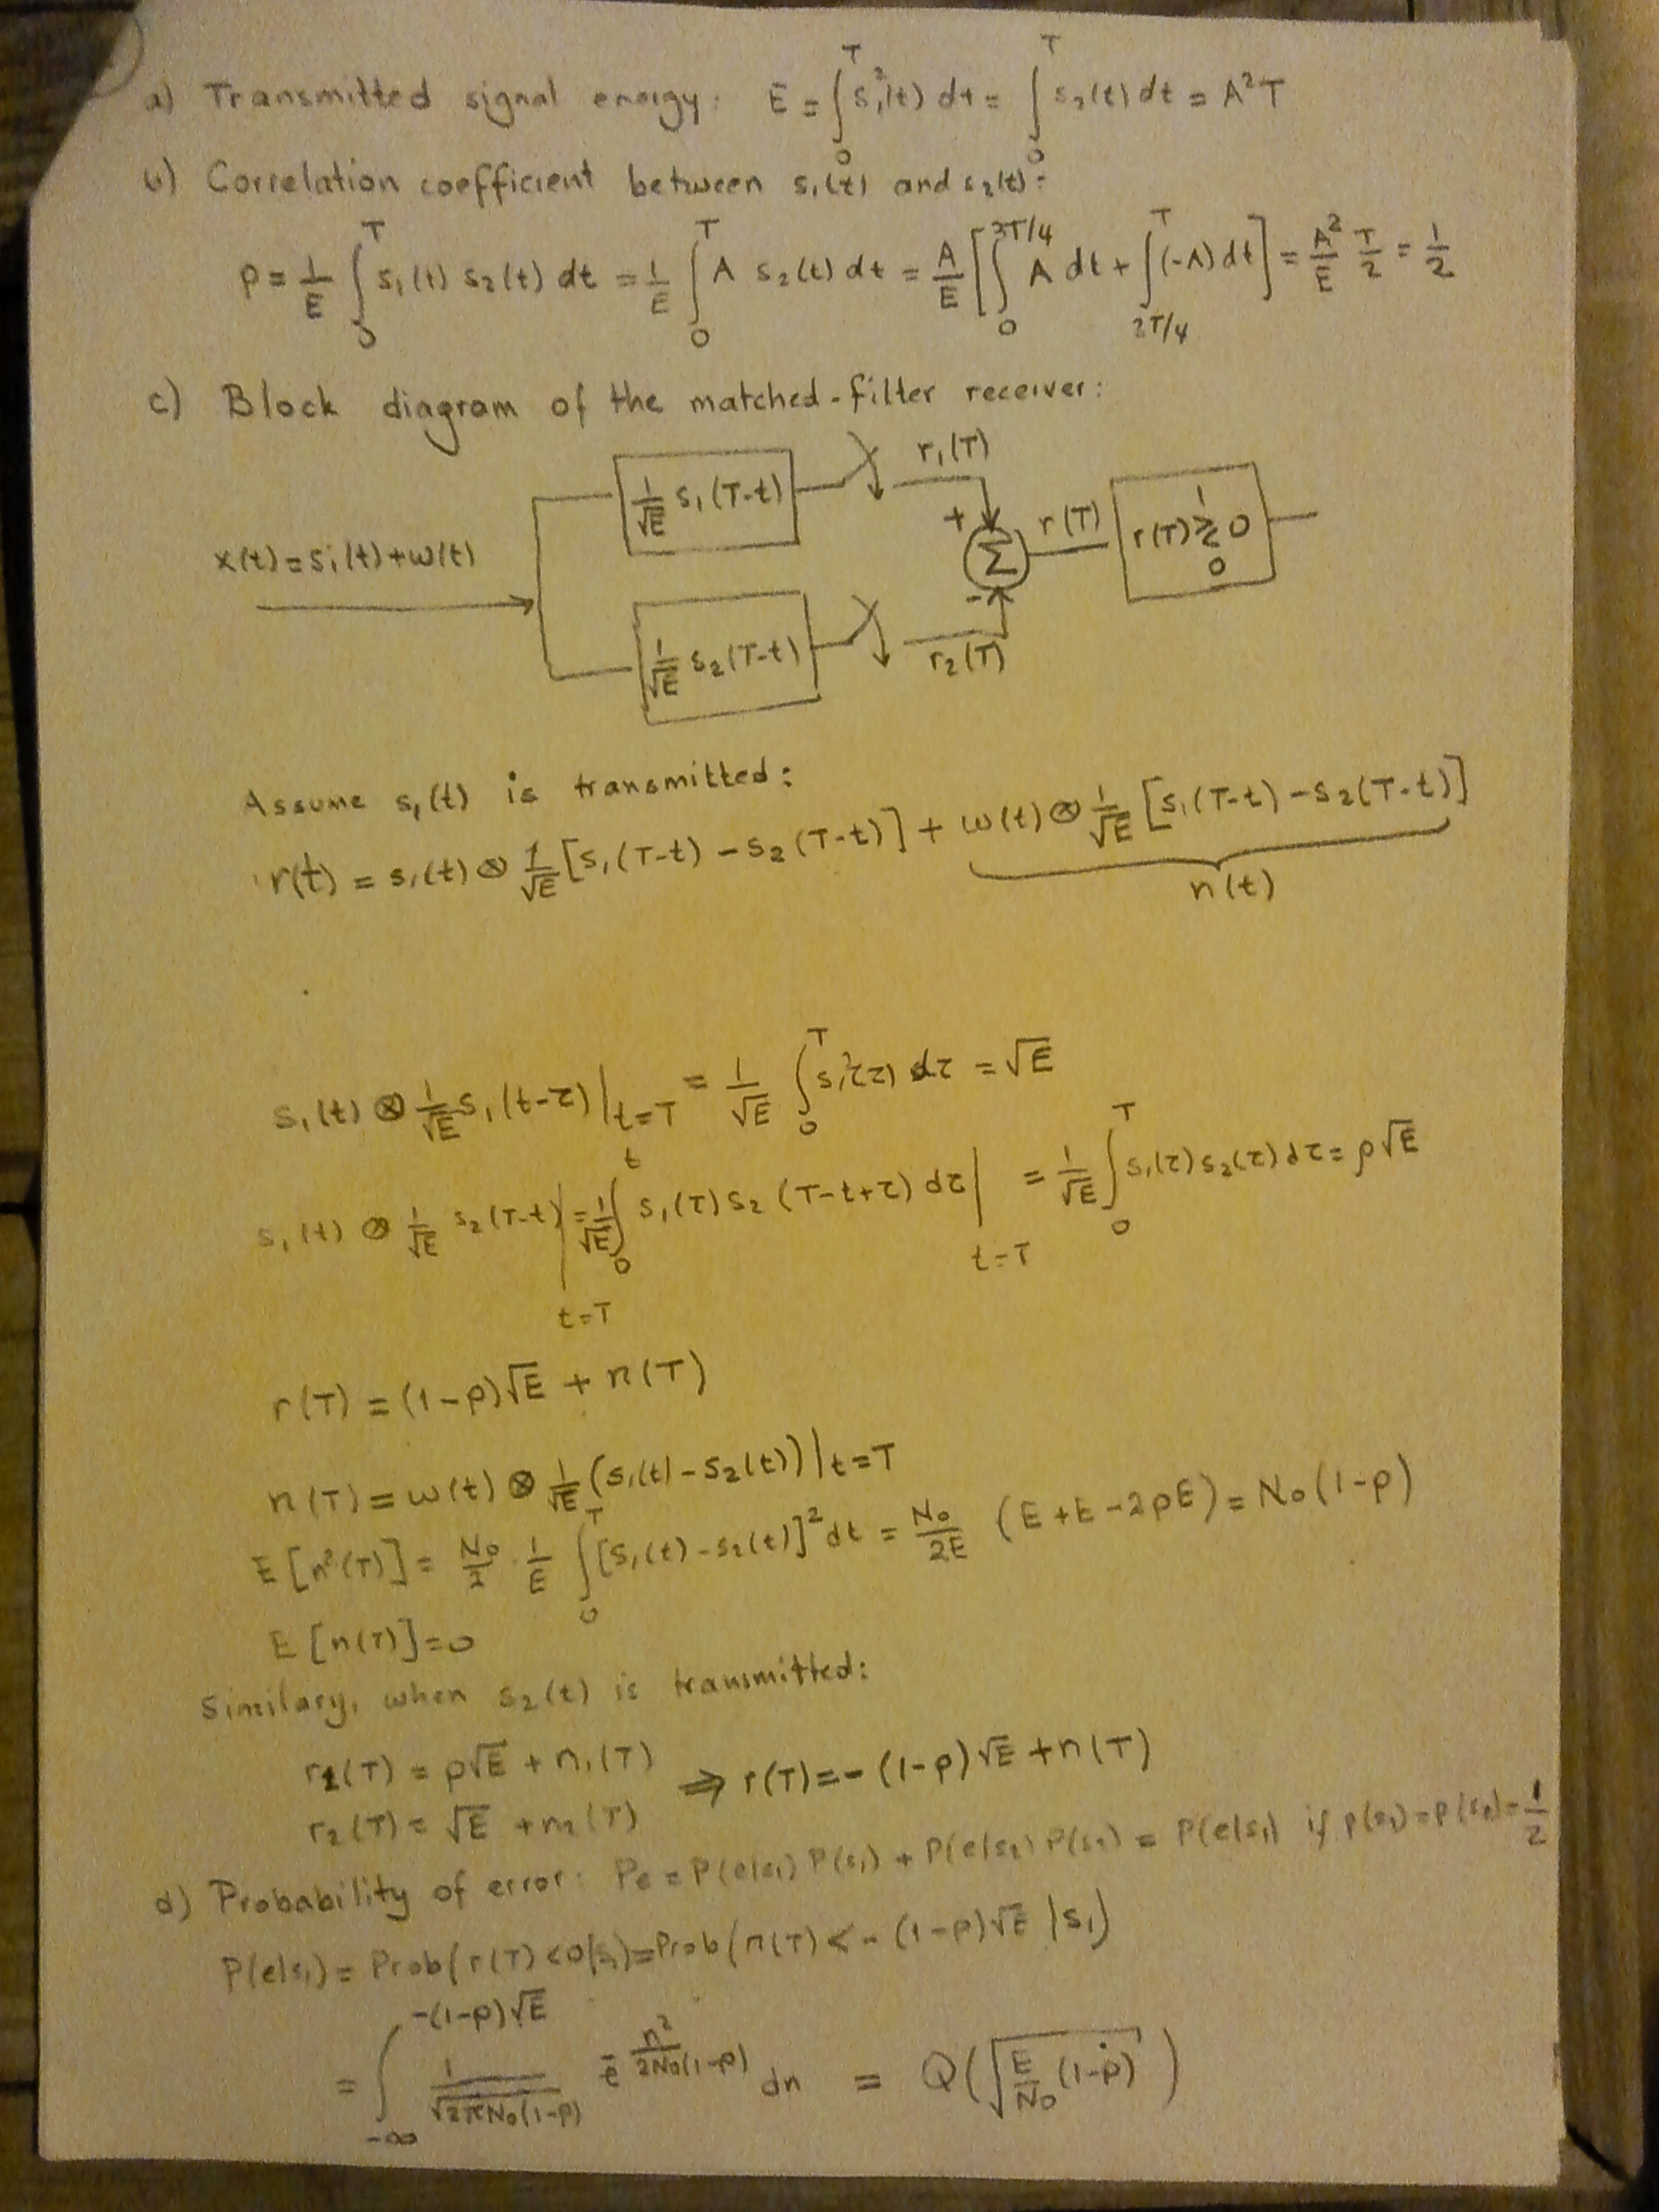 a) Transmitted signal energy: E = ∫₀ᵀ s₁²(t) dt = ∫₀ᵀ s₂(t) dt = A²T
b) Correlation coefficient between s₁(t) and s₂(t):
ρ = 1/E ∫₀ᵀ s₁(t) s₂(t) dt = 1/E ∫₀ᵀ A s₂(t) dt = A/E [∫₀^(3T/4) A dt + ∫_(3T/4)^T (-A) dt] = A²/E T/2 = 1/2
c) Block diagram of the matched-filter receiver:
x(t) = sᵢ(t) + w(t)
1/√E s₁(T-t)
r₁(T)
+
Σ
r(T)
r(T) ≷ 0
1
0
1/√E s₂(T-t)
-
r₂(T)
Assume s₁(t) is transmitted:
r(t) = s₁(t) ⊗ 1/√E [s₁(T-t) - s₂(T-t)] + w(t) ⊗ 1/√E [s₁(T-t) - s₂(T-t)]
n(t)
s₁(t) ⊗ 1/√E s₁(t-τ)|t=T = 1/√E ∫₀ᵀ s₁²(τ) dτ = √E
s₁(t) ⊗ 1/√E s₂(T-t)|t=T = 1/√E ∫₀ᵗ s₁(τ) s₂(T-t+τ) dτ|t=T = 1/√E ∫₀ᵀ s₁(τ) s₂(τ) dτ = ρ√E
r(T) = (1-ρ)√E + n(T)
n(T) = w(t) ⊗ 1/√E (s₁(t) - s₂(t))|t=T
E[n²(T)] = N₀/2 · 1/E ∫₀ᵀ [s₁(t) - s₂(t)]² dt = N₀/2E (E + E - 2ρE) = N₀(1-ρ)
E[n(T)] = 0
Similary, when s₂(t) is transmitted:
r₁(T) = ρ√E + n₁(T) ⇒ r(T) = -(1-ρ)√E + n(T)
r₂(T) = √E + n₂(T)
d) Probability of error: Pe = P(e|s₁) P(s₁) + P(e|s₂) P(s₂) = P(e|s₁) if p(s₁) = p(s₂) = 1/2
P(e|s₁) = Prob(r(T) < 0|s₁) = Prob(n(T) < -(1-ρ)√E |s₁)
= ∫_(-∞)^(-(1-ρ)√E) 1/√(2πN₀(1-ρ)) e^(-n²/2N₀(1-ρ)) dn = Q(√(E/N₀ (1-ρ)))